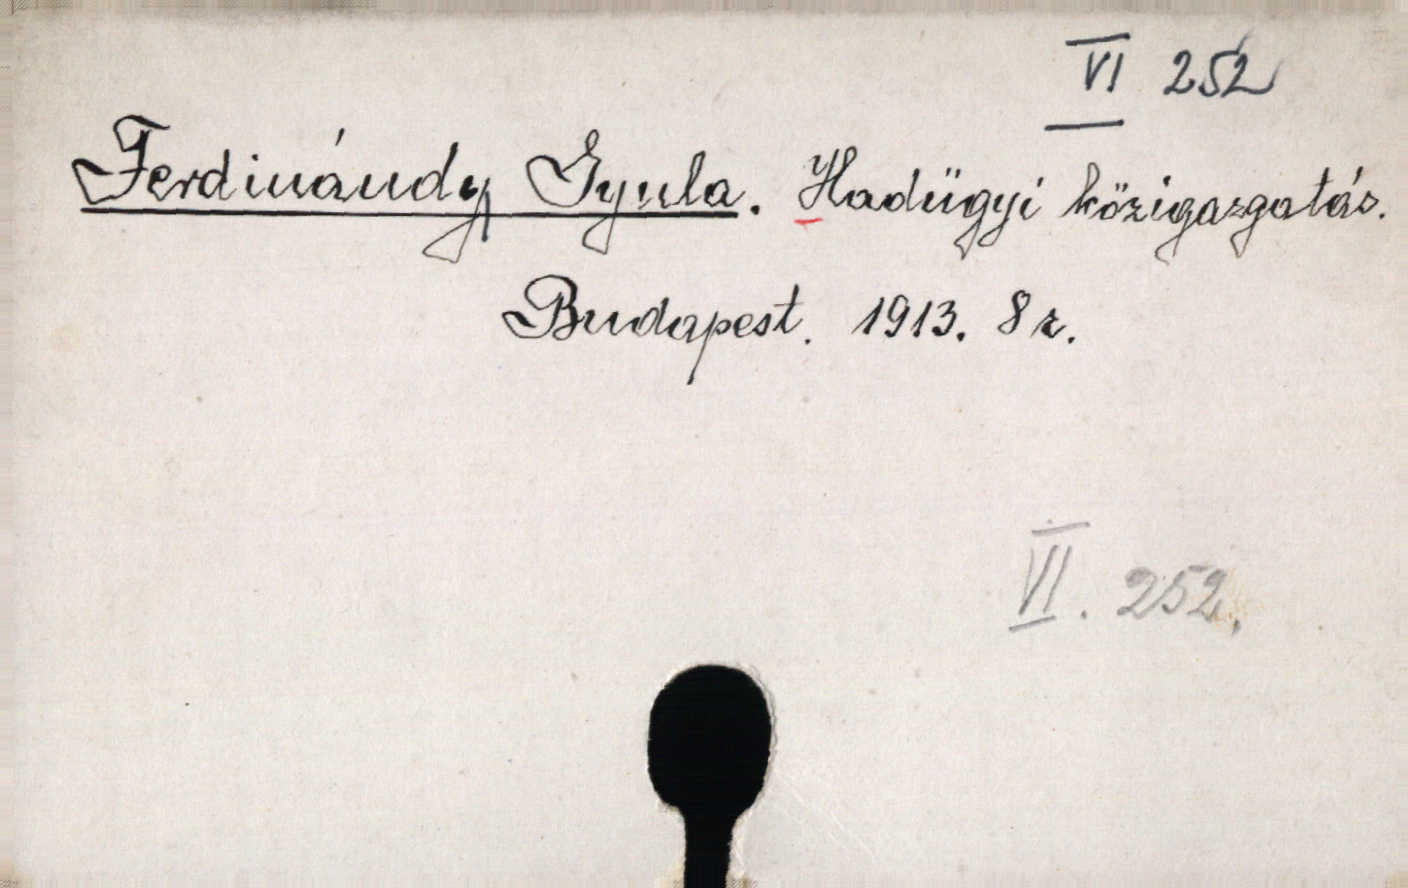 VI 252
Ferdinándy Gyula. Hadügyi közigazgatás.
Budapest. 1913. 8 r.
VI. 252.